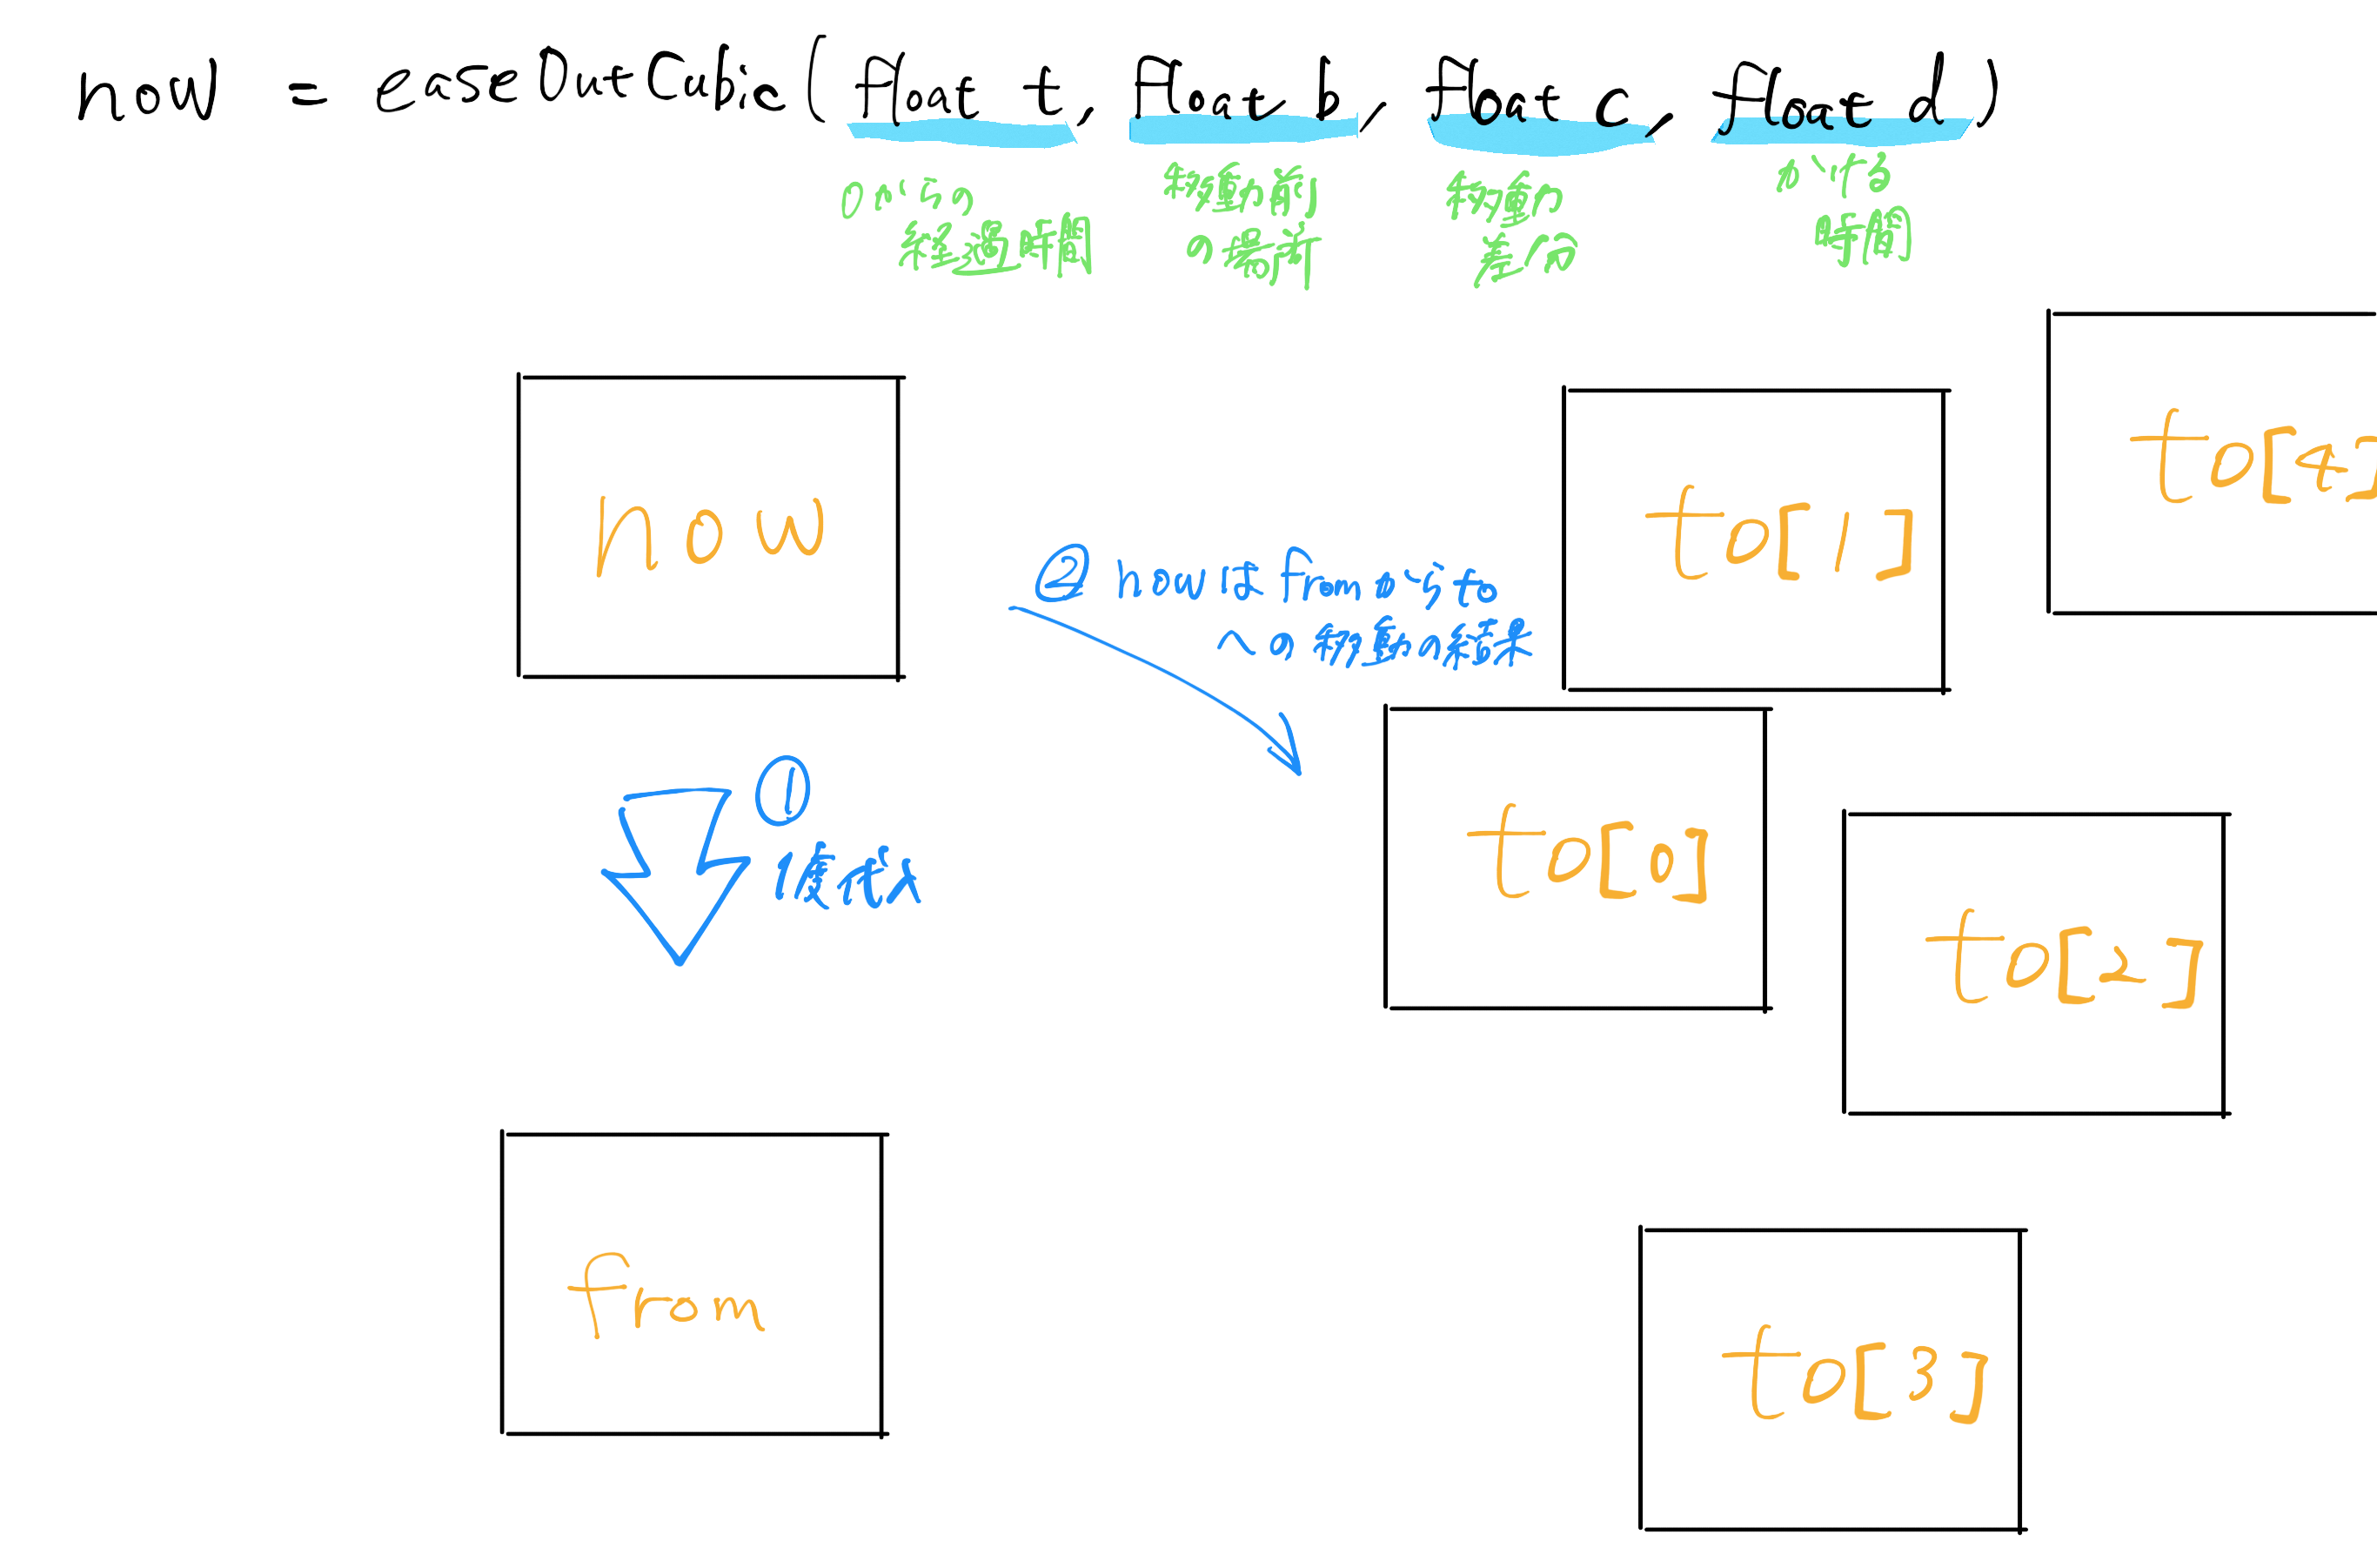 now = easeOutCubic(float t, float b, float c, float d)
0からの
経過時間
移動前
の場所
移動の
差分
かかる
時間
now
to[1]
to[4]
② nowはfromからto
への移動の結果
to[0]
①
代入
to[2]
from
to[3]